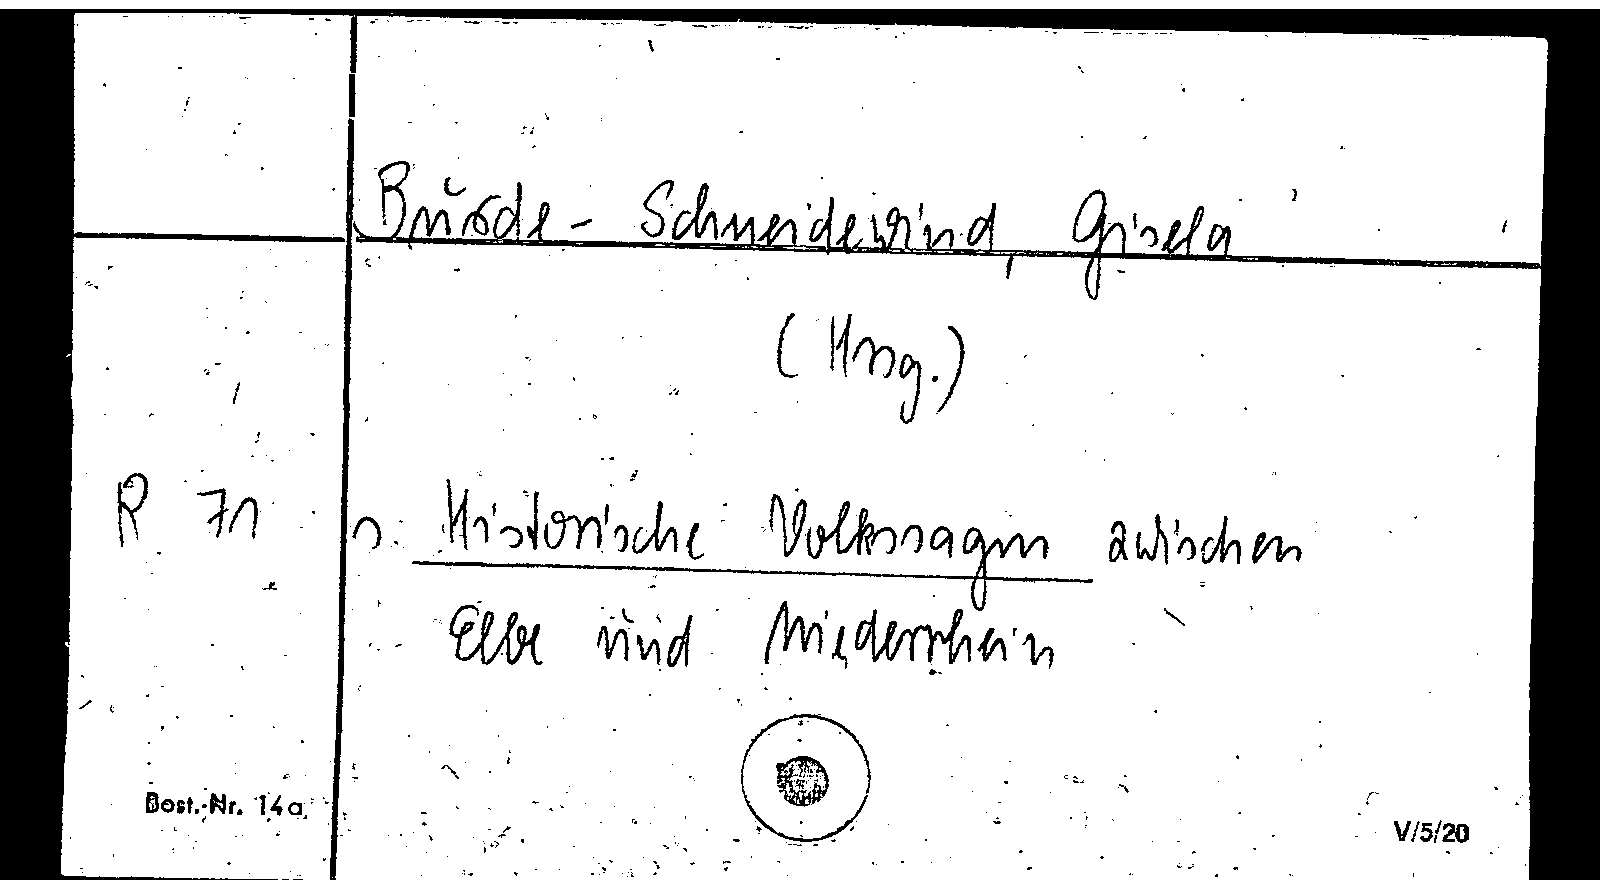 Burde-Schneidewind, Gisela
(Hrsg.)
R 71 s. Historische Volkssagen zwischen
Elbe und Niederrhein
Best.-Nr. 14a
V/5/20